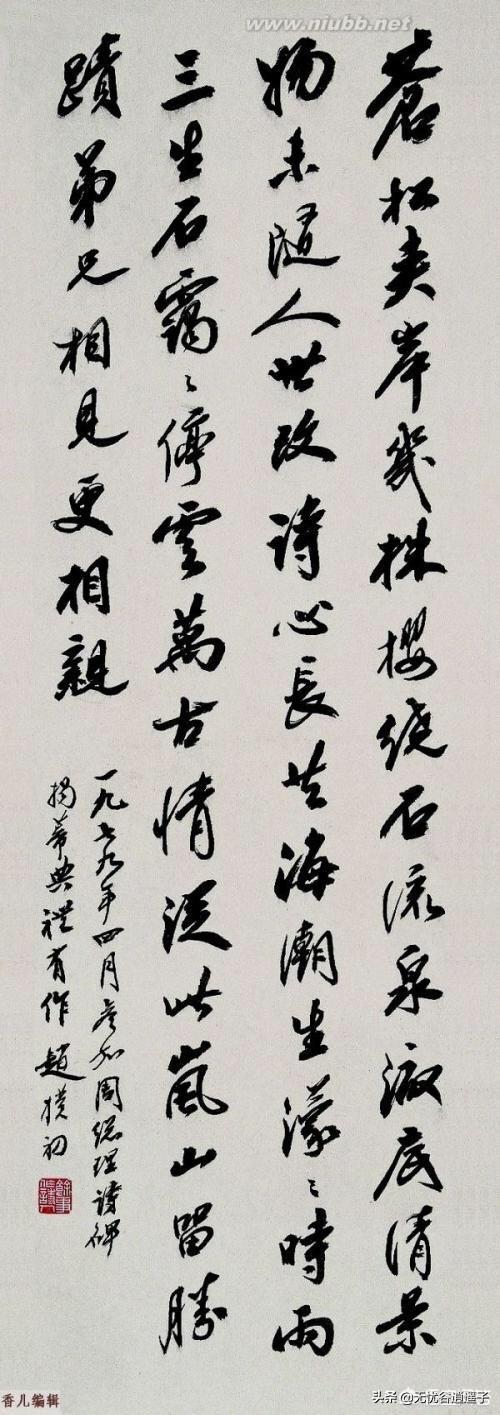 www.niubb.net
蒼松夾岸幾株櫻繞石流泉澈底清景
物未隨人世改詩心長共海潮生濛〻時雨
三生石靄〻停雲萬古情從此嵐山留勝
蹟弟兄相見更相親
一九七九年四月參加周總理詩碑
揭幕典禮有作 趙樸初
香儿编辑
头条@无忧谷逍遥子